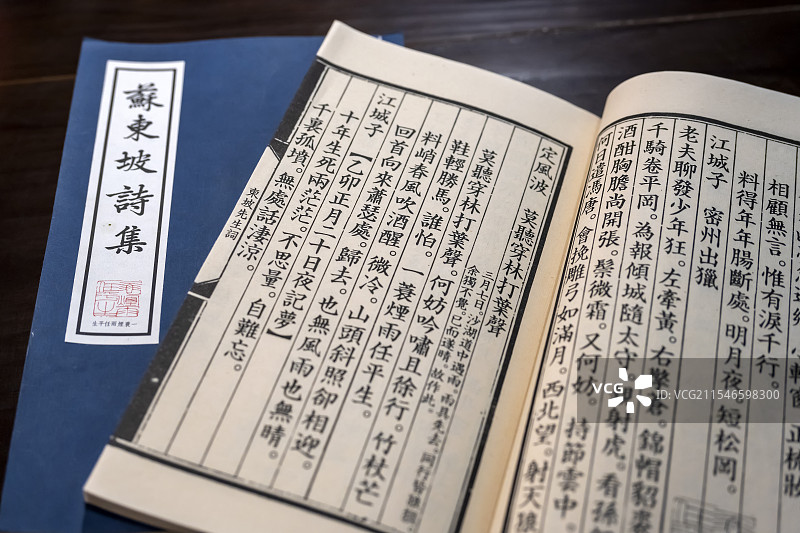 蘇東坡詩集
一蓑煙雨任平生
正梳妝
相顧無言。惟有淚千行。
料得年年腸斷處。明月夜短松岡。
江城子 密州出獵
老夫聊發少年狂。左牽黃。右擎蒼。錦帽貂裘
千騎卷平岡。為報傾城隨太守。射虎。看孫
酒酣胸膽尚開張。鬢微霜。又何妨。持節雲中
何日遣馮唐。會挽雕弓如滿月。西北望。射天狼
定風波 莫聽穿林打葉聲
三月七日。沙湖道中遇雨。雨具先去。同行皆狼狽
余獨不覺。已而遂晴。故作此。
莫聽穿林打葉聲。何妨吟嘯且徐行。竹杖芒
鞋輕勝馬。誰怕。一蓑煙雨任平生。
料峭春風吹酒醒。微冷。山頭斜照卻相迎。
回首向來蕭瑟處。歸去。也無風雨也無晴。
江城子【乙卯正月二十日夜記夢】
十年生死兩茫茫。不思量。自難忘。
千裏孤墳。無處話淒涼。
東城先生詞
VCG
ID: VCG211546598300